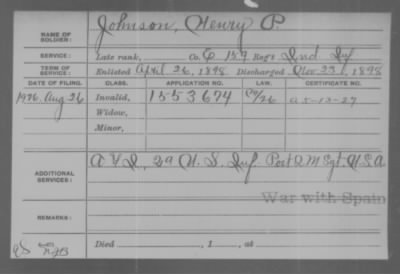 NAME OF SOLDIER: Johnson, Henry P.
SERVICE: Late rank, Co. G 159 Reg't Ind Inf
TERM OF SERVICE: Enlisted April 26, 1898 Discharged Nov. 23, 1898
DATE OF FILING. CLASS. APPLICATION NO. LAW. CERTIFICATE NO.
1926, Aug 26 Invalid, 1553674 A 5-13-27
Widow,
Minor,
ADDITIONAL SERVICES: 29 U.S. Inf. Post Q M Sgt. U.S.A
War with Spain
REMARKS:
Died , 1 , at